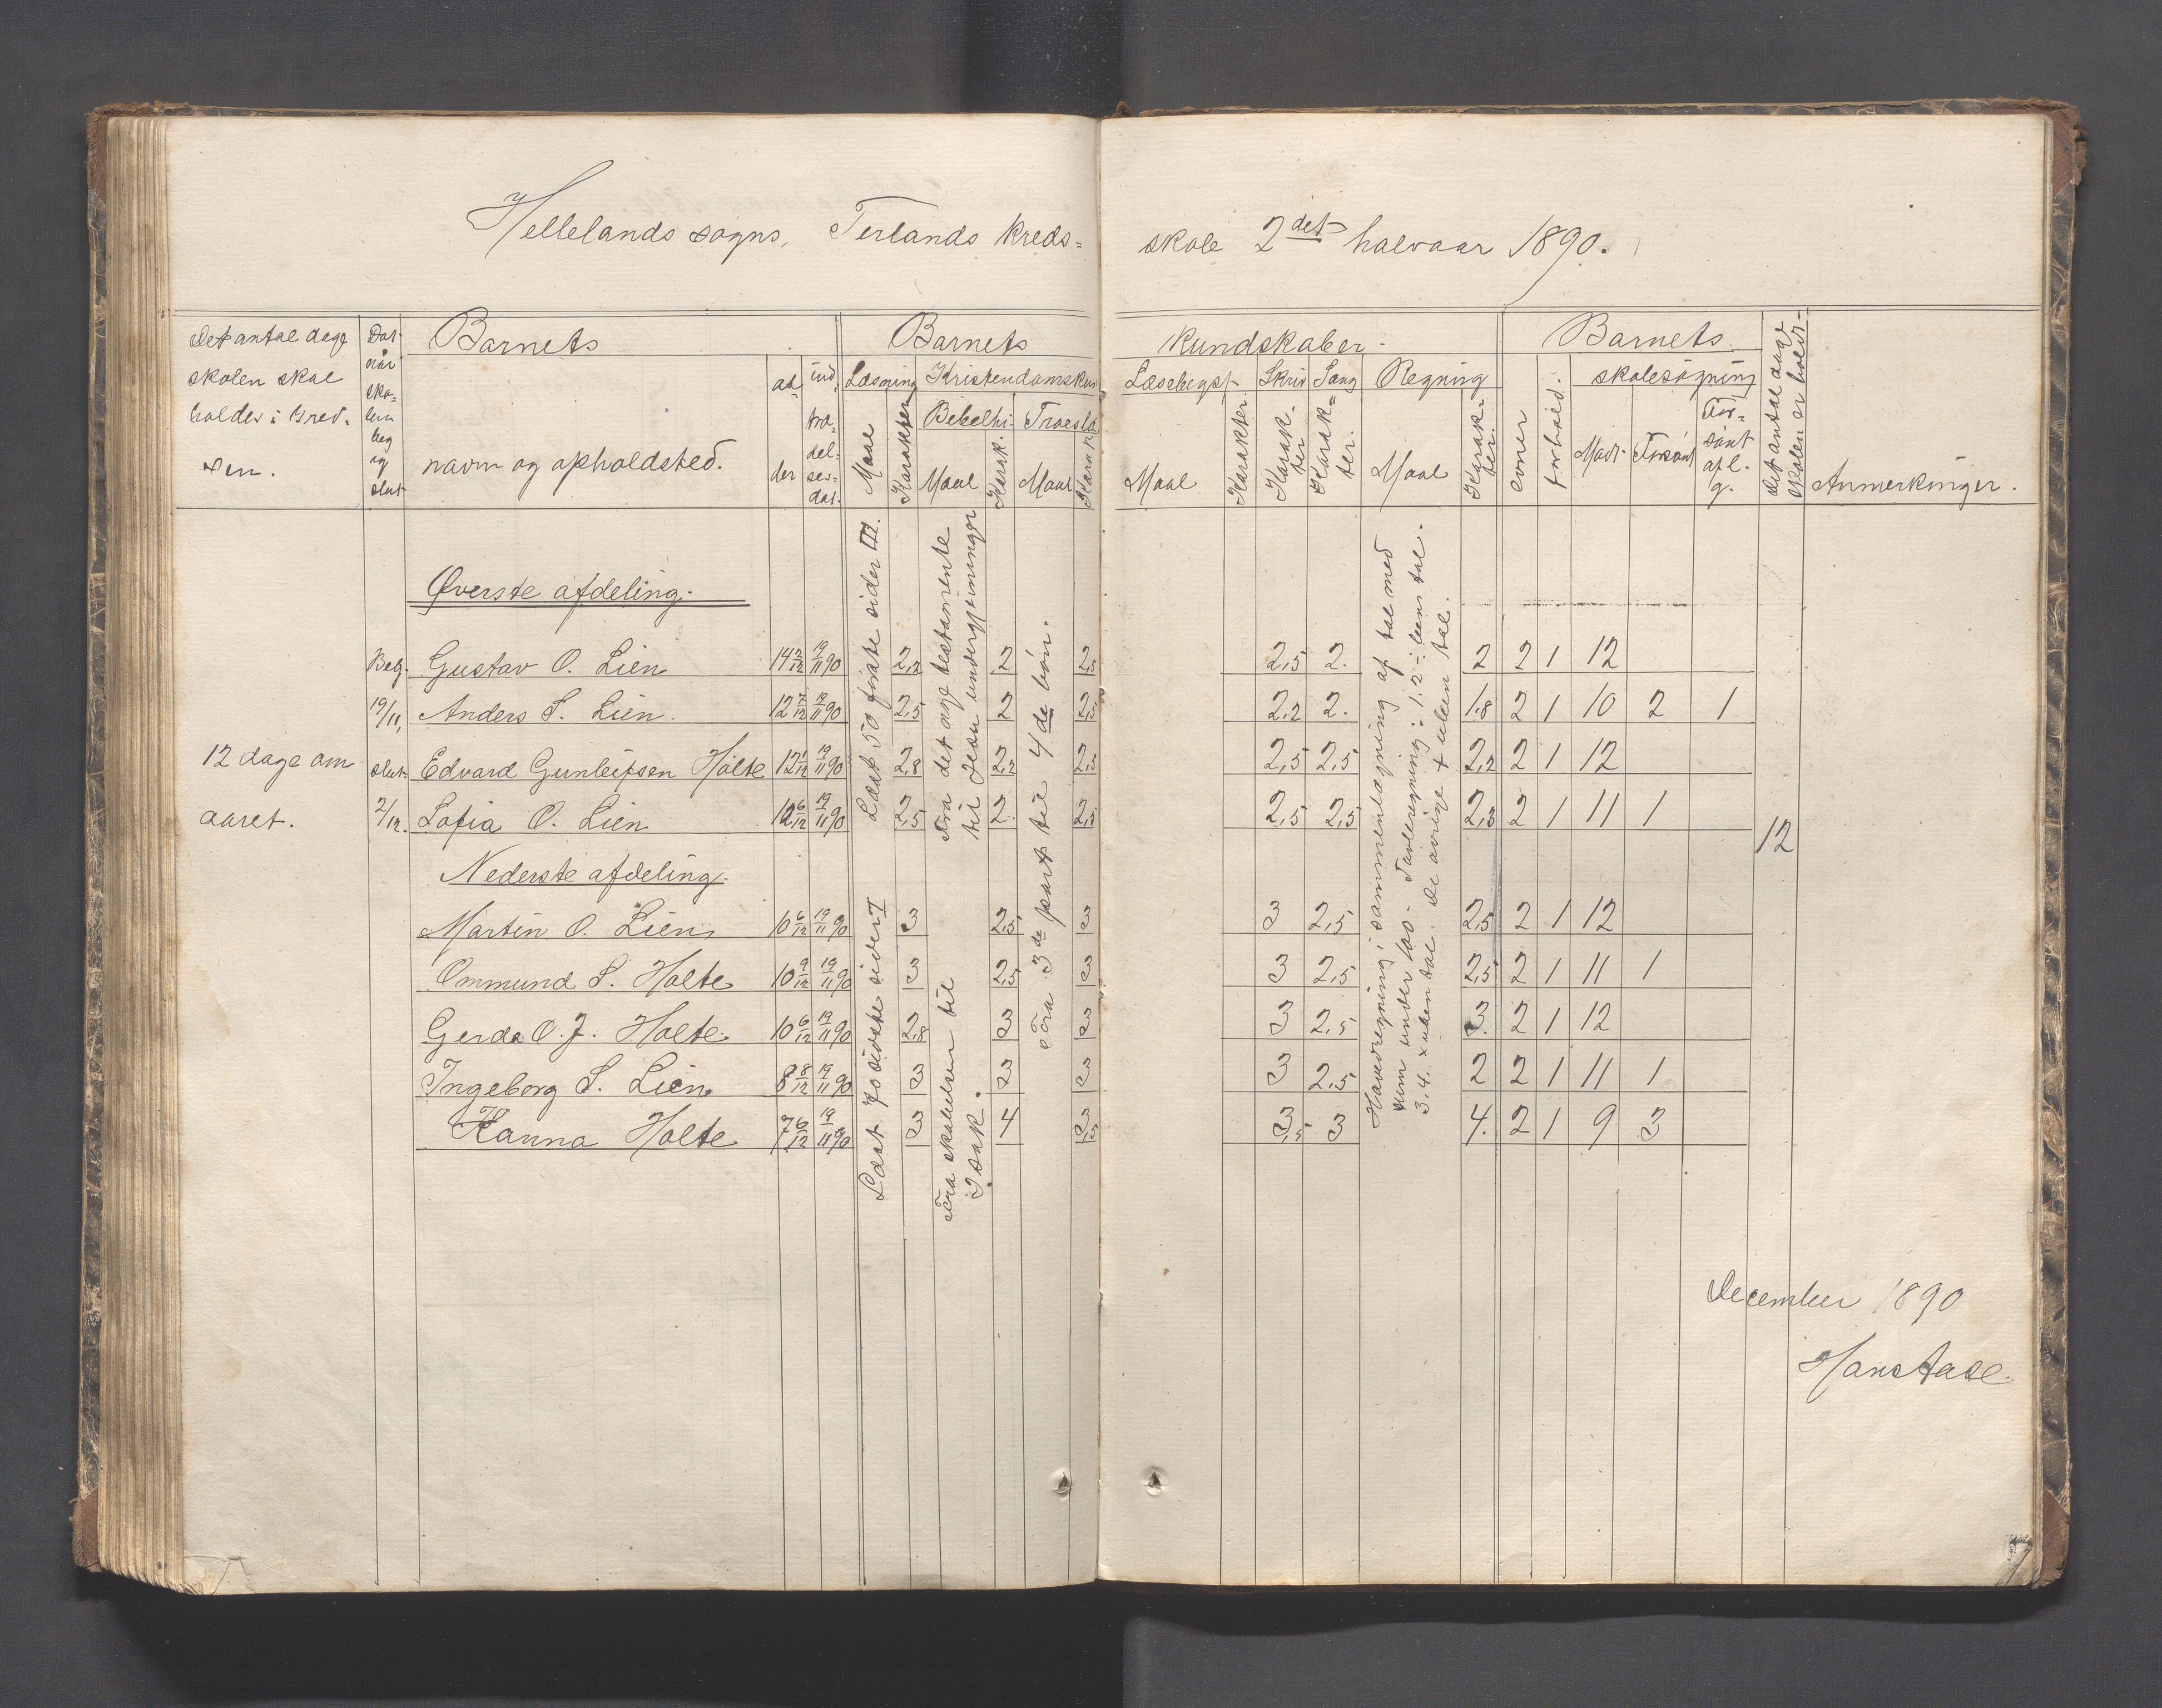 Hellelands sogns, Terlands kreds=
skole 2det halvaar 1890.
Det antal dage skolen skal holdes i kred. sen.
Dat når sko= len beg og slut
Barnets
navn og opholdsted.
al, der
ind, træ, del= ses= dat.
Barnets
Læsning Kristendomskun
Maal Karakter
Bibelhi. Troeslæ
Maal Karak. Maal Karak
Kundskaber.
Læsebogst. Skriv Sang Regning
Maal Karakter. Karak- ter Karak= ter. Maal Karak= ter.
Barnets
evner forhold. skolesøgning
Mødt. Forsømt For- sømt af l. g.
Det antal dage skolen er holdt-
Anmerkinger.
Øverste afdeling.
Beg. Gustav O. Lien 14 2/12 19/11 90 2,2 2 2,5 2,5 2. 2 2 1 12
19/11, Anders S. Lien. 12 7/12 19/11 90 2,5 2 2,5 2,2 2. 1,8 2 1 10 2 1
12 dage om slut Edvard Gunleifsen Holte 12 1/12 19/11 90 2,8 2,2 2,5 2,5 2,5 2,2 2 1 12
aaret. 2/12. Sofia O. Lien 12 6/12 19/11 90 2,5 2 2,5 2,5 2,5 2,5 2 1 11 1
12
Nederste afdeling.
Martin O. Lien 10 6/12 19/11 90 3 2,5 3 3 2,5 2,5 2 1 12
Ommund S. Holte 10 9/12 19/11 90 3 2,5 3 3 2,5 2,5 2 1 11 1
Gerda O. J. Holte. 10 6/12 19/11 90 2,8 3 3 3 2,5 3. 2 1 12
Ingeborg S. Lien 8 8/12 19/11 90 3 3 3 3 2,5 2 2 1 11 1
Hanna Holte 7 6/12 19/11 90 3 4 3,5 3,5 3 4. 2 1 9 3
Læst 50 første sider III.
Læst 70 sidste sider I
Fra det nye testamente
til Jesu undergjerninger
Fra skabelsen til
Isak.
Fra 3de part til 4de bøn.
Hovedregning i sammenlægning af tal med
sum under 100 - Tavleregning: 1. 2 ÷ been tal.
3. 4. x uben tal. De øvrige + uben tal.
December 1890
Hanstad.